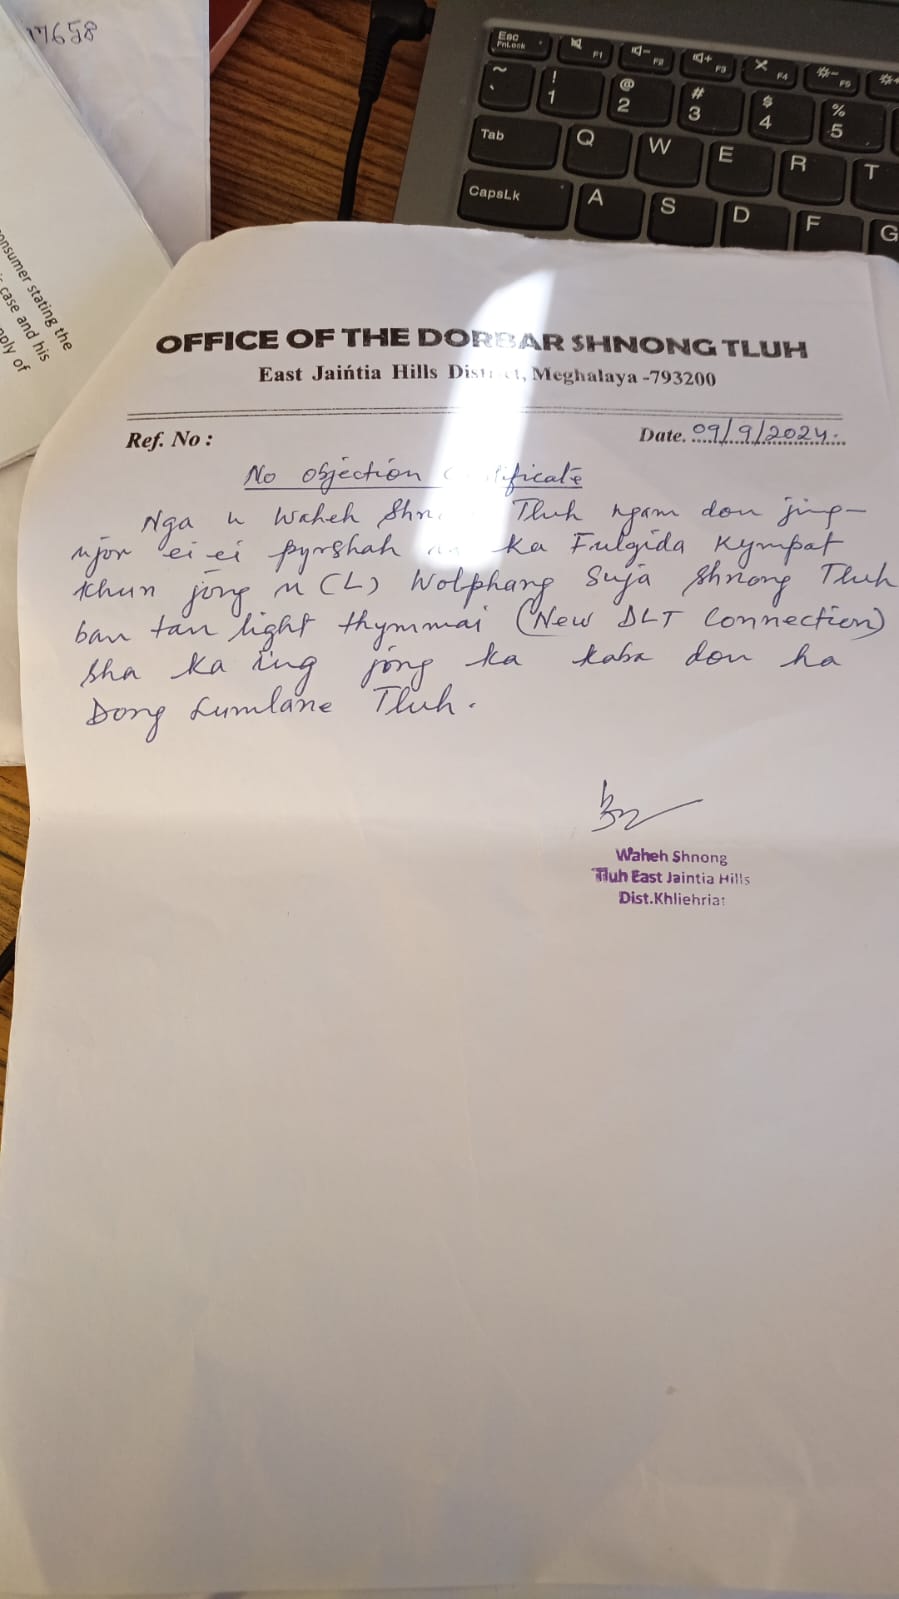 17658
onsumer stating the
case and his
ply of
Esc
FnLock
F1
F2
F3
F4
F5
~
`
!
1
@
2
#
3
$
4
%
5
Tab
Q
W
E
R
T
CapsLk
A
S
D
F
G
OFFICE OF THE DORBAR SHNONG TLUH
East Jaińtia Hills District, Meghalaya -793200
Ref. No :
Date. 09/9/2024.
No objection Certificate
Nga u Waheh Tluh ngam don jing-
mjor ei ei pyrshah ka Fulgida Kympat
khun jong u (L) Wolphang Suja Shnong Tluh
ban tan light thymmai (New DLT Connection)
sha ka ïing jong ka kaba don ha
Dong Lumlane Tluh.
Waheh Shnong
Tluh East Jaintia Hills
Dist.Khliehriat